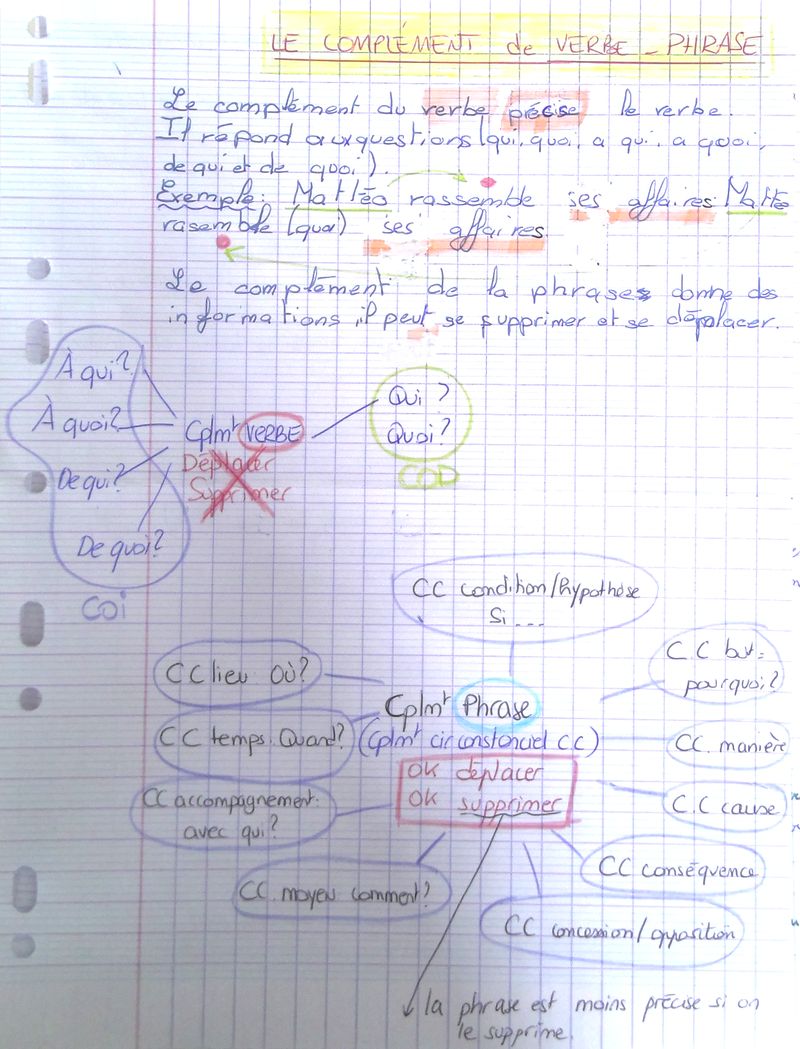 LE COMPLÉMENT de VERBE - PHRASE
Le complément du verbe précise le verbe.
Il répond aux questions (qui, quoi, a qui, a quoi,
de qui et de quoi).
Exemple: Matléo rassemble ses affaires Matléo
rasemble (quoi) ses affaires.
Le complément de la phrases donne des
informations, il peut se supprimer et se déplacer.
À qui?
À quoi?
De qui?
De quoi?
COI
Cplmt VERBE
Déplacer
Supprimer
Qui ?
Quoi?
COD
CC condition/hypothèse
Si ...
CC lieu Où?
C.C but:
pourquoi?
Cplmt Phrase
CC temps. Quand?
(Cplmt circonstanciel CC)
CC. manière
OK déplacer
OK supprimer
CC accompagnement:
avec qui?
C.C cause
CC conséquence
CC. moyen comment?
CC concession/opposition
la phrase est moins précise si on
le supprime.